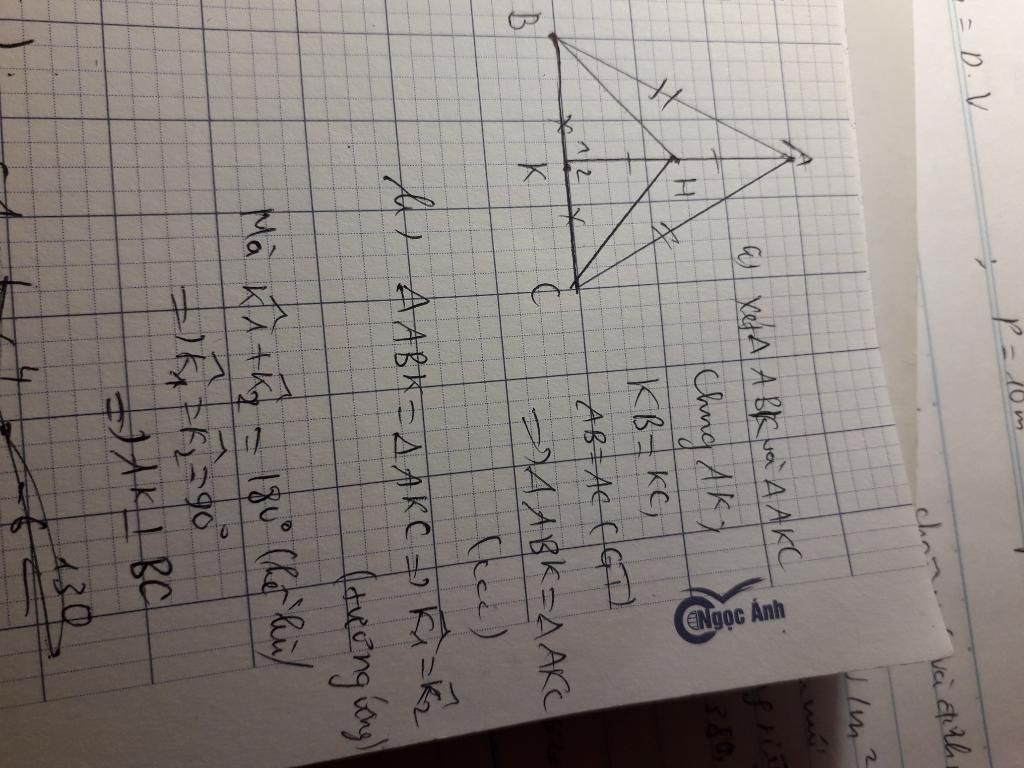 B
H
A
K
1
2
H
C
a) Xét Δ ABK và Δ AKC
Chung AK;
KB = KC;
AB = AC (GT)
=> Δ ABK = Δ AKC
(ccc)
b) Δ ABK = Δ AKC => K̂1 = K̂2
(tương ứng)
Mà K̂1 + K̂2 = 180° (kề bù)
=> K̂1 = K̂2 = 90°
=> AK ⊥ BC
Ngọc Ánh
130
4
6
= D.V
P = 10m
380